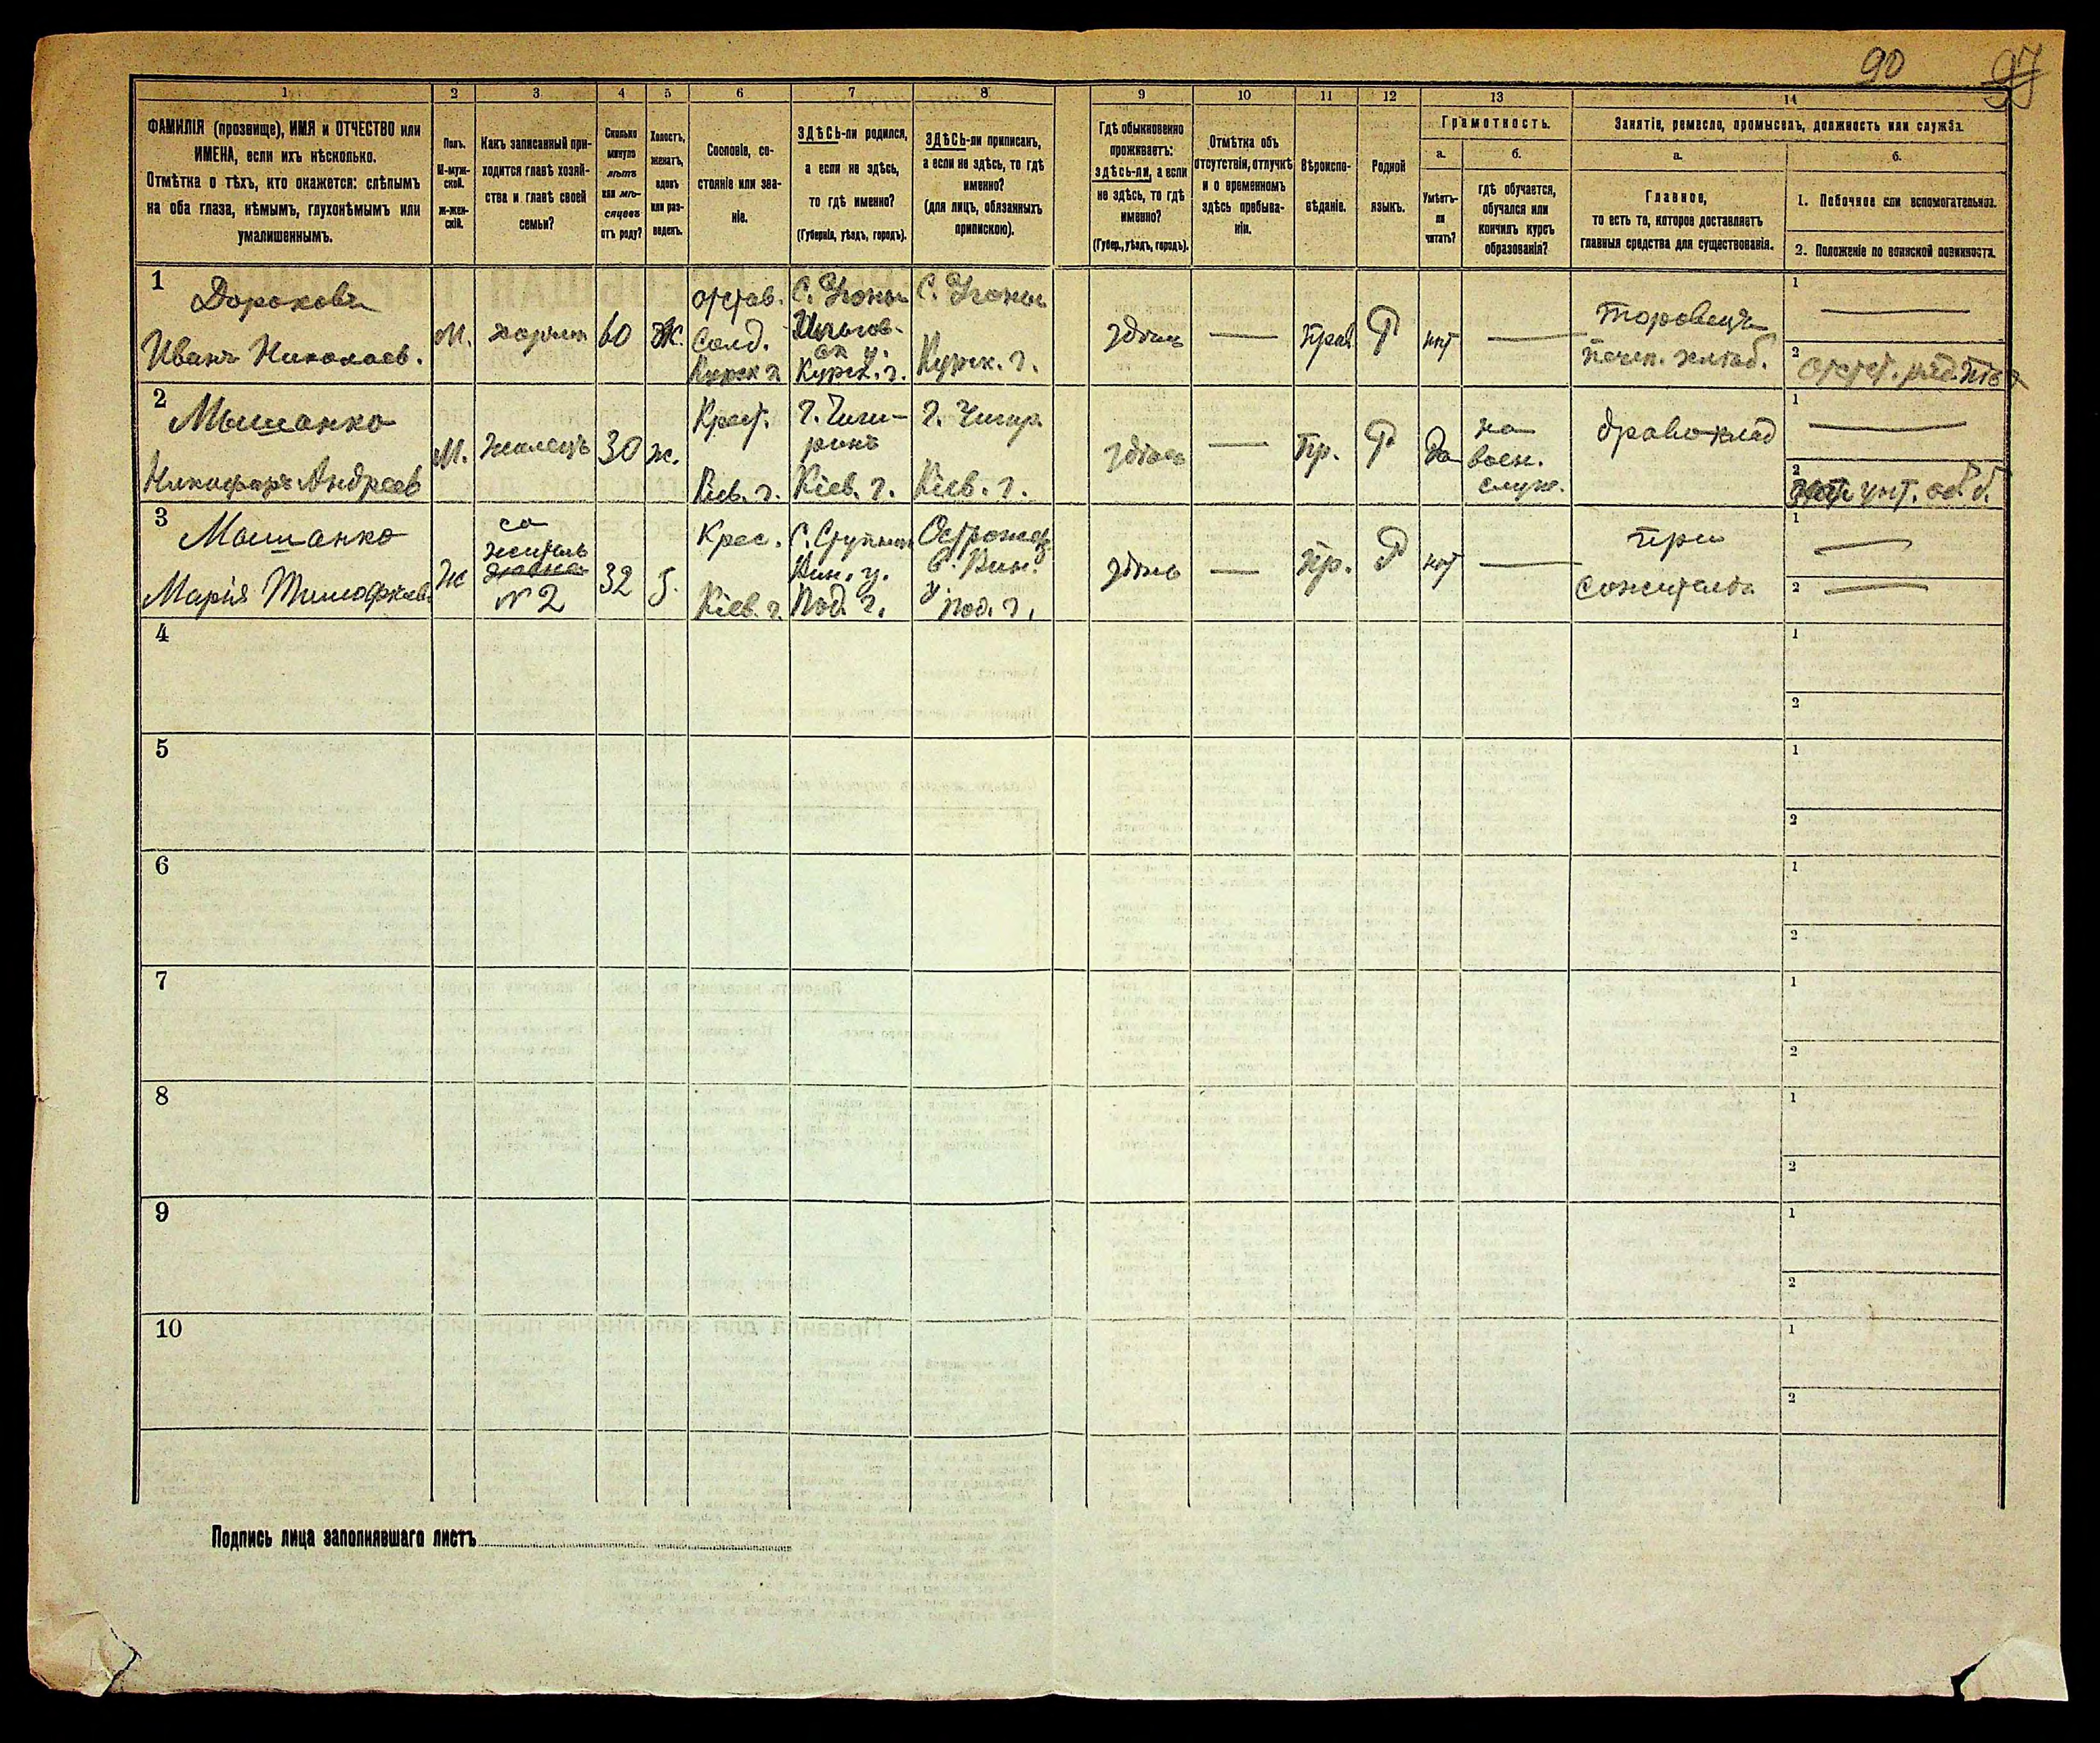 90 97
1 2 3 4 5 6 7 8 9 10 11 12 13 14
ФАМИЛІЯ (прозвище), ИМЯ и ОТЧЕСТВО или
ИМЕНА, если ихъ нѣсколько.
Отмѣтка о тѣхъ, кто окажется: слѣпымъ
на оба глаза, нѣмымъ, глухонѣмымъ или
умалишеннымъ.
Полъ.
М-муж-
ской.
ж-жен-
скій.
Какъ записанный при-
ходится главѣ хозяй-
ства и главѣ своей
семьи?
Сколько
минуло
лѣтъ
или мѣ-
сяцевъ
отъ роду?
Холостъ,
женатъ,
вдовъ
или раз-
веденъ.
Сословіе, со-
стояніе или зва-
ніе.
ЗДѢСЬ-ли родился,
а если не здѣсь,
то гдѣ именно?
(Губернія, уѣздъ, городъ).
ЗДѢСЬ-ли приписанъ,
а если не здѣсь, то гдѣ
именно?
(для лицъ, обязанныхъ
припискою).
Гдѣ обыкновенно
проживаетъ:
здѣсь-ли, а если
не здѣсь, то гдѣ
именно?
(Губер., уѣздъ, городъ).
Отмѣтка объ
отсутствіи, отлучкѣ
и о временномъ
здѣсь пребыва-
ніи.
Вѣроиспо-
вѣданіе.
Родной
языкъ.
Грамотность.
а.
Умѣетъ-
ли
читать?
б.
гдѣ обучается,
обучался или
кончилъ курсъ
образованія?
Занятіе, ремесло, промыселъ, должность или служба.
а.
Главное,
то есть то, которое доставляетъ
главныя средства для существованія.
б.
1. Побочное или вспомогательное.
2. Положеніе по воинской повинности.
1
Дороховъ
Иванъ Николаев.
М.
60
Ж.
отстав.
Солд.
Курск г.
С.
Курск. г.
С.
Курск. г.
здѣсь
Прав.
Р
нѣт
Торовецъ
1
2
2
Мышанко
Никифоръ Андреев
М.
Жилецъ
30
ж.
Крест.
Кіев. г.
г. Чиги-
ринъ
Кіев. г.
г. Чигир.
Кіев. г.
здѣсь
Пр.
Р
Да
на
воен.
служ.
дравоклад
1
2
3
Мышанко
Марія Тимофеев.
Ж
со
житель
№ 2
32
Крес.
Кіев. г.
С.
Вин. у.
Под. г.
Вин.
у Под. г.
здѣсь
Пр.
Р
нѣт
при
сожителѣ
1
2
4
1
2
5
1
2
6
1
2
7
1
2
8
1
2
9
1
2
10
1
2
Подпись лица заполнявшаго листъ